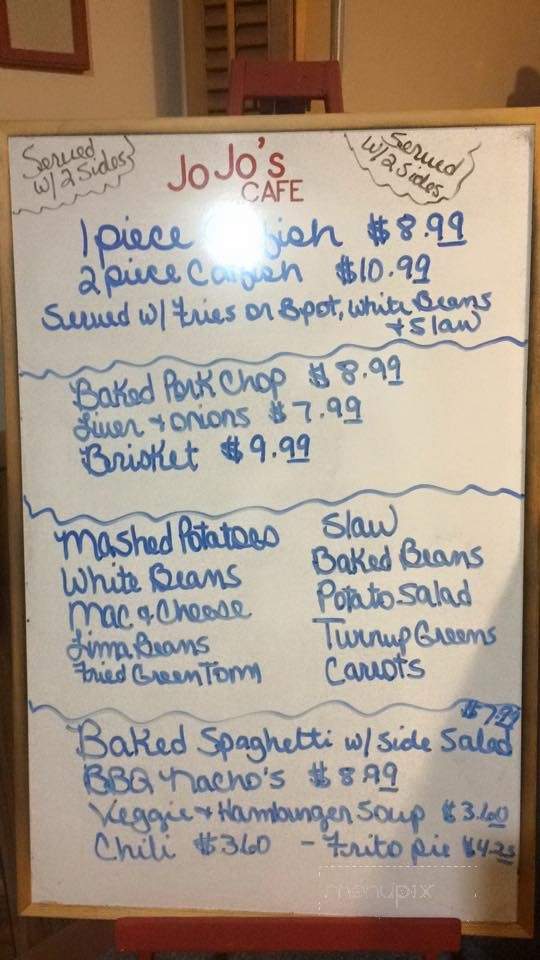 Served
w/2 Sides
JoJo's
CAFE
Served
w/2 Sides
1 piece fish $8.99
2 piece Catfish $10.99
Served w/ Fries or Bpot, White Beans
+ Slaw
Baked Pork Chop $8.99
Liver + onions $7.99
Brisket $9.99
Mashed Potatoes
White Beans
Mac & Cheese
Lima Beans
Fried Green Tom
Slaw
Baked Beans
Potato Salad
Turnup Greens
Carrots
$7.99
Baked Spaghetti w/ Side Salad
BBQ Nacho's $8.99
Veggie + Hamburger Soup $3.60
Chili $3.60 - Frito pie $4.25
menupix